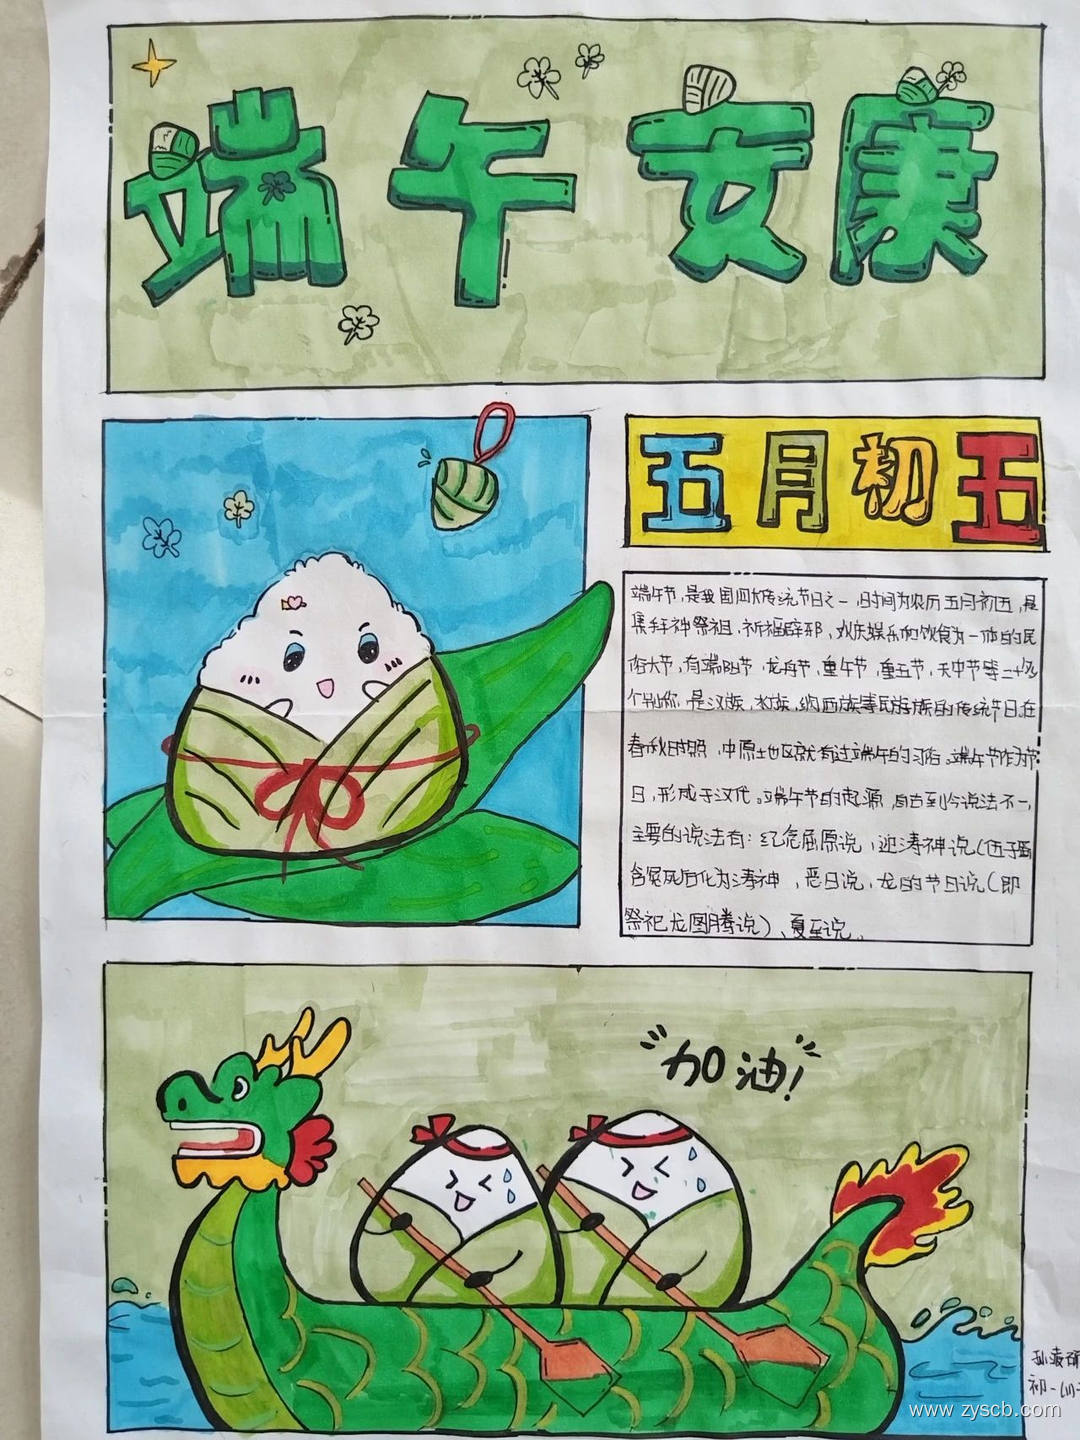 端午安康
五月初五
端午节,是我国四大传统节日之一,时间为农历五月初五,是
集拜神祭祖,祈福辟邪,欢庆娱乐和饮食为一体的民
俗大节,有端阳节,龙舟节,重午节,重五节,天中节等二十多
个别称,是汉族,水族,纳西族等民族的传统节日.在
春秋时期,中原土地区就有过端午的习俗.端午节作为节
日,形成于汉代。端午节的起源,自古到今说法不一,
主要的说法有:纪念屈原说,迎涛神说(伍子胥
含冤死后化为涛神,恶日说,龙的节日说(即
祭祀龙图腾说)、夏至说。
加油!
初一(1)
www.zyscb.com